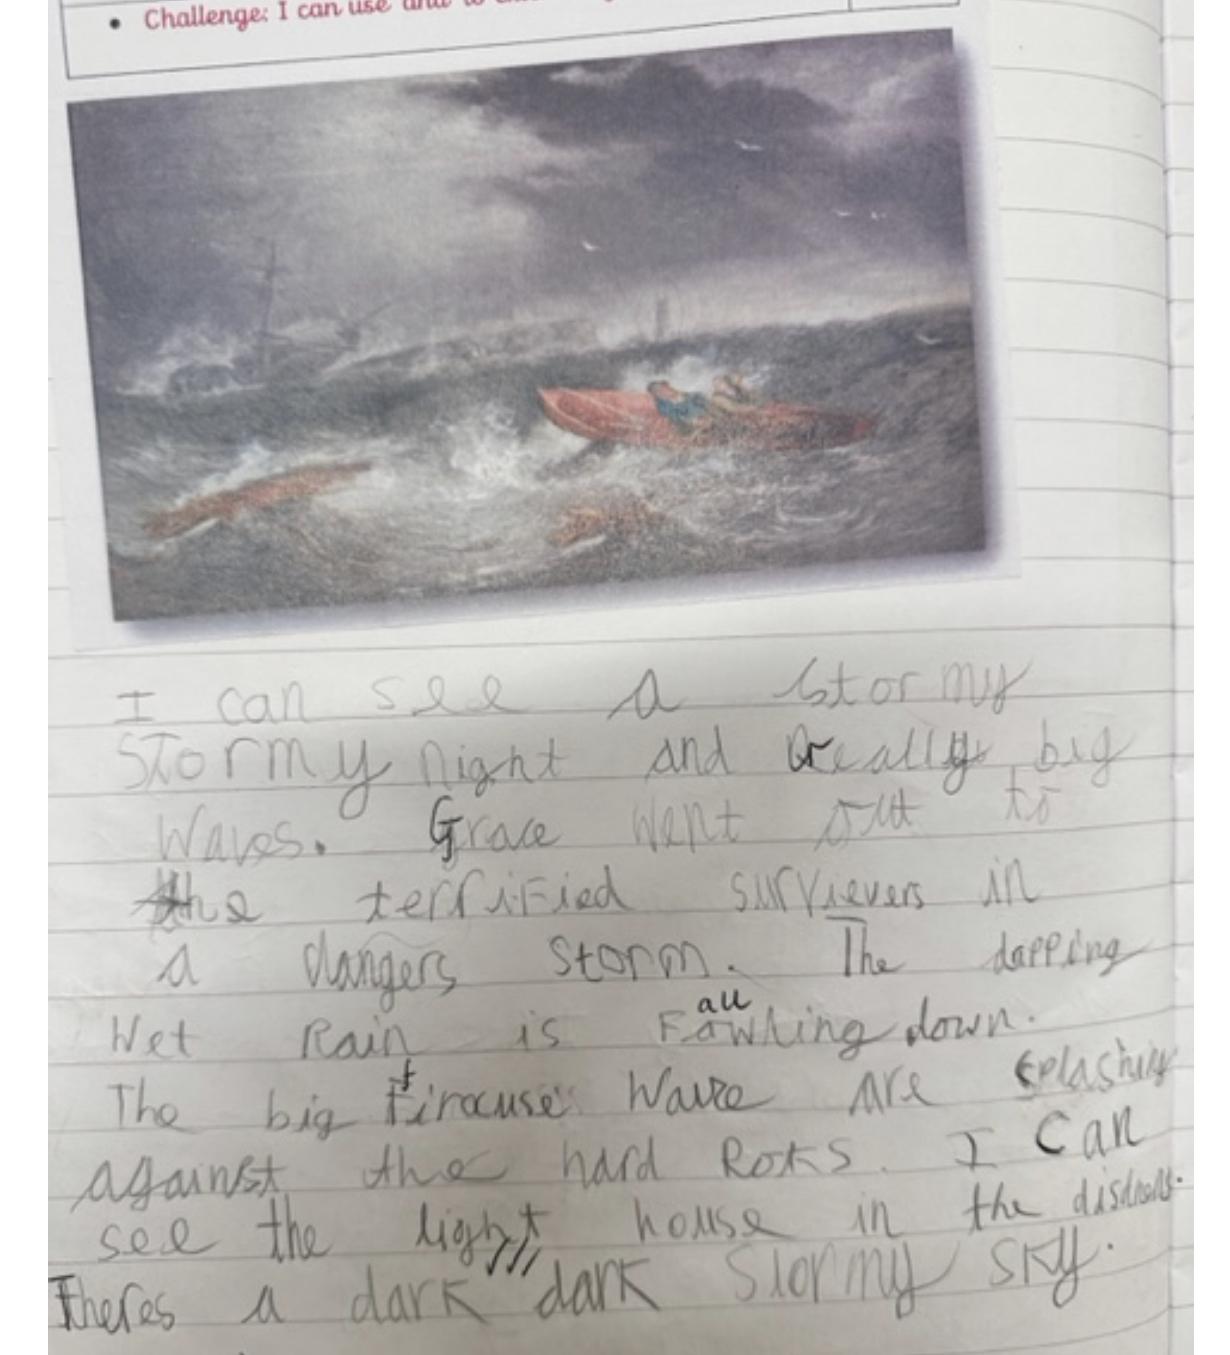 • Challenge: I can use and to
I can see a stormy
stormy night and really big
waves. Grace went out to
the terrified survievers in
a dangers storm. The dapping
Wet Rain is Falling down.
The big firocuse wave are splashing
against the hard Roks. I can
see the light house in the
Theres a dark dark stormy sky.